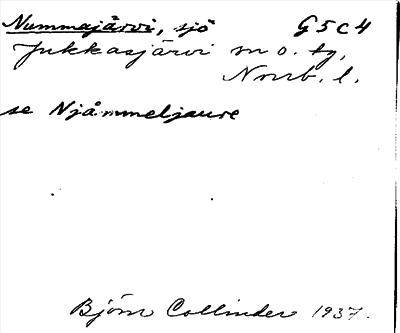 Nummajärvi, sjö G5c4
Jukkasjärvi sn o. tg,
Norrb. l.
se Njåmmeljaure
Björn Collinder 1937.